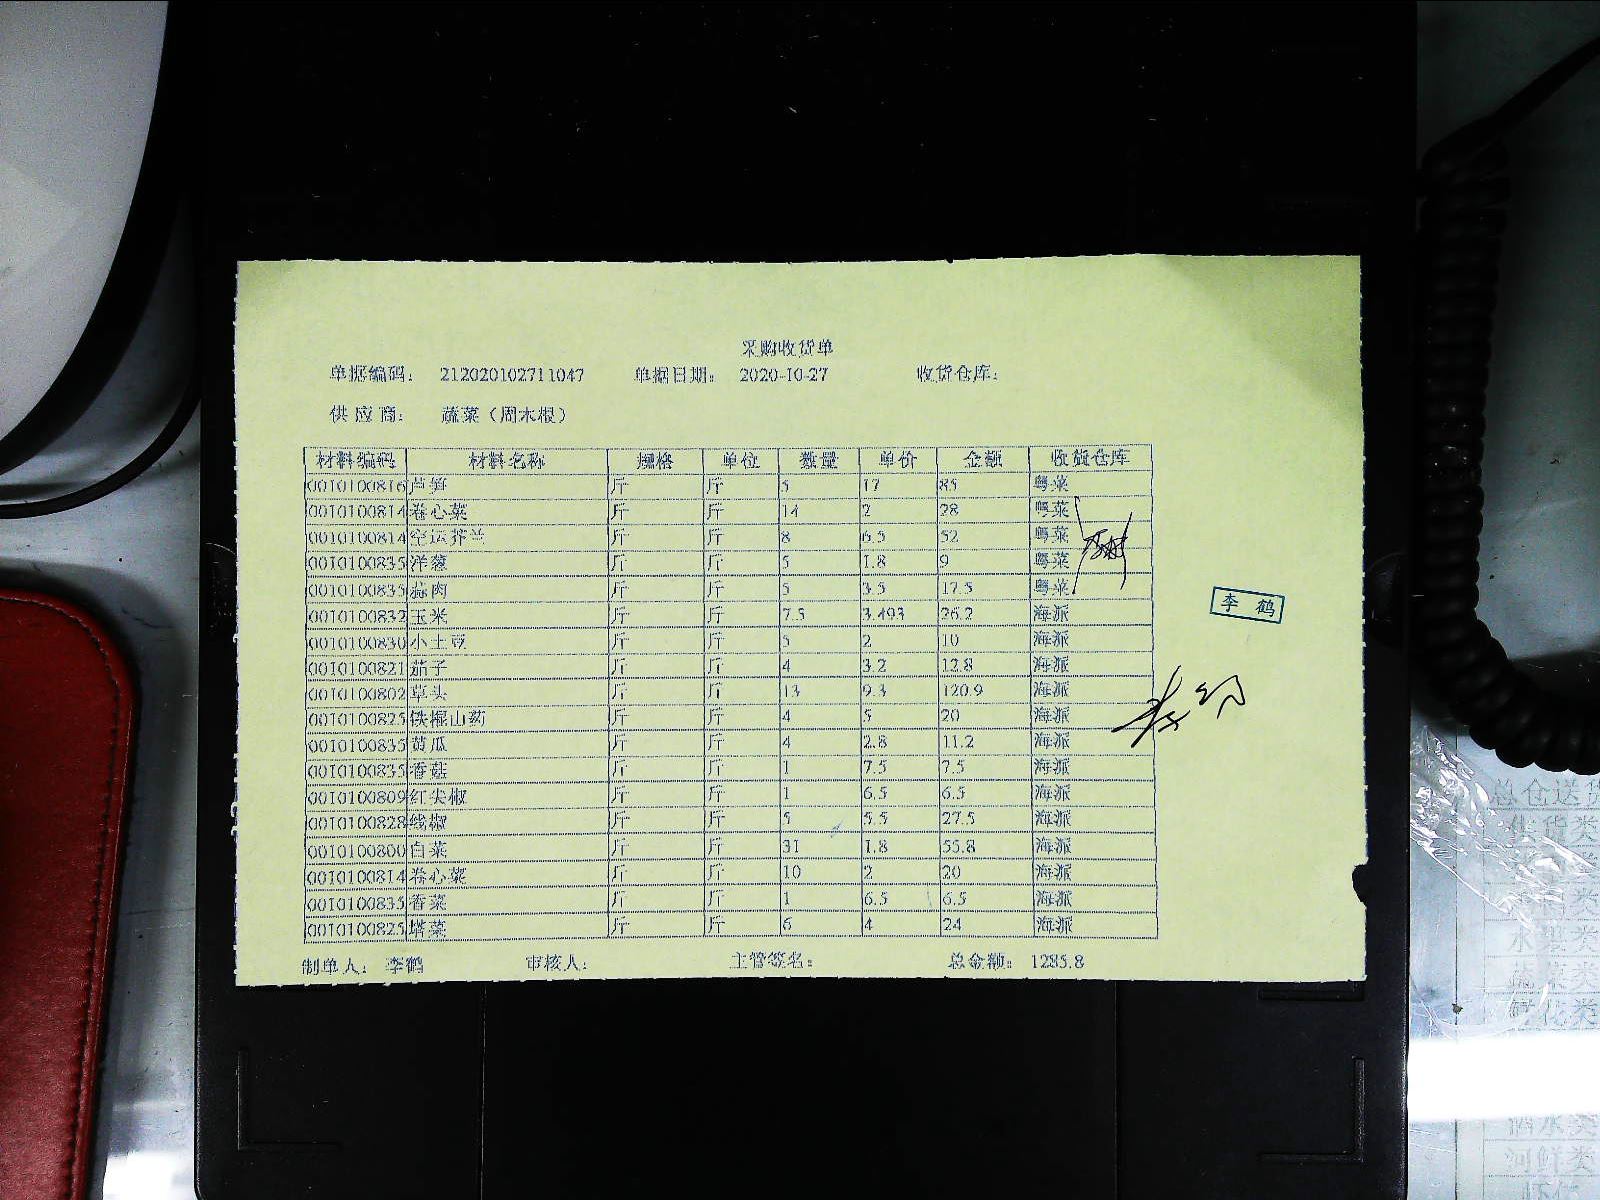 采购收货单
单据编码： 212020102711047 单据日期： 2020-10-27 收货仓库：
供应商： 蔬菜（周木根）
材料编码 材料名称 规格 单位 数量 单价 金额 收货仓库
0010100816 芦笋 斤 斤 5 17 85 粤菜
0010100814 卷心菜 斤 斤 14 2 28 粤菜
0010100814 空运芥兰 斤 斤 8 6.5 52 粤菜
0010100835 洋葱 斤 斤 5 1.8 9 粤菜
0010100835 蒜肉 斤 斤 5 3.5 17.5 粤菜
0010100832 玉米 斤 斤 7.5 3.493 26.2 海派
李鹤
0010100830 小土豆 斤 斤 5 2 10 海派
0010100821 茄子 斤 斤 4 3.2 12.8 海派
0010100802 草头 斤 斤 13 9.3 120.9 海派
0010100825 铁棍山药 斤 斤 4 5 20 海派
0010100835 黄瓜 斤 斤 4 2.8 11.2 海派
0010100835 香菇 斤 斤 1 7.5 7.5 海派
0010100809 红尖椒 斤 斤 1 6.5 6.5 海派
0010100828 线椒 斤 斤 5 5.5 27.5 海派
0010100800 白菜 斤 斤 31 1.8 55.8 海派
0010100814 卷心菜 斤 斤 10 2 20 海派
0010100835 香菜 斤 斤 1 6.5 6.5 海派
0010100825 塔菜 斤 斤 6 4 24 海派
制单人： 李鹤 审核人： 主管签名： 总金额： 1285.8
总仓送货
蔬菜类
酒水类
河鲜类